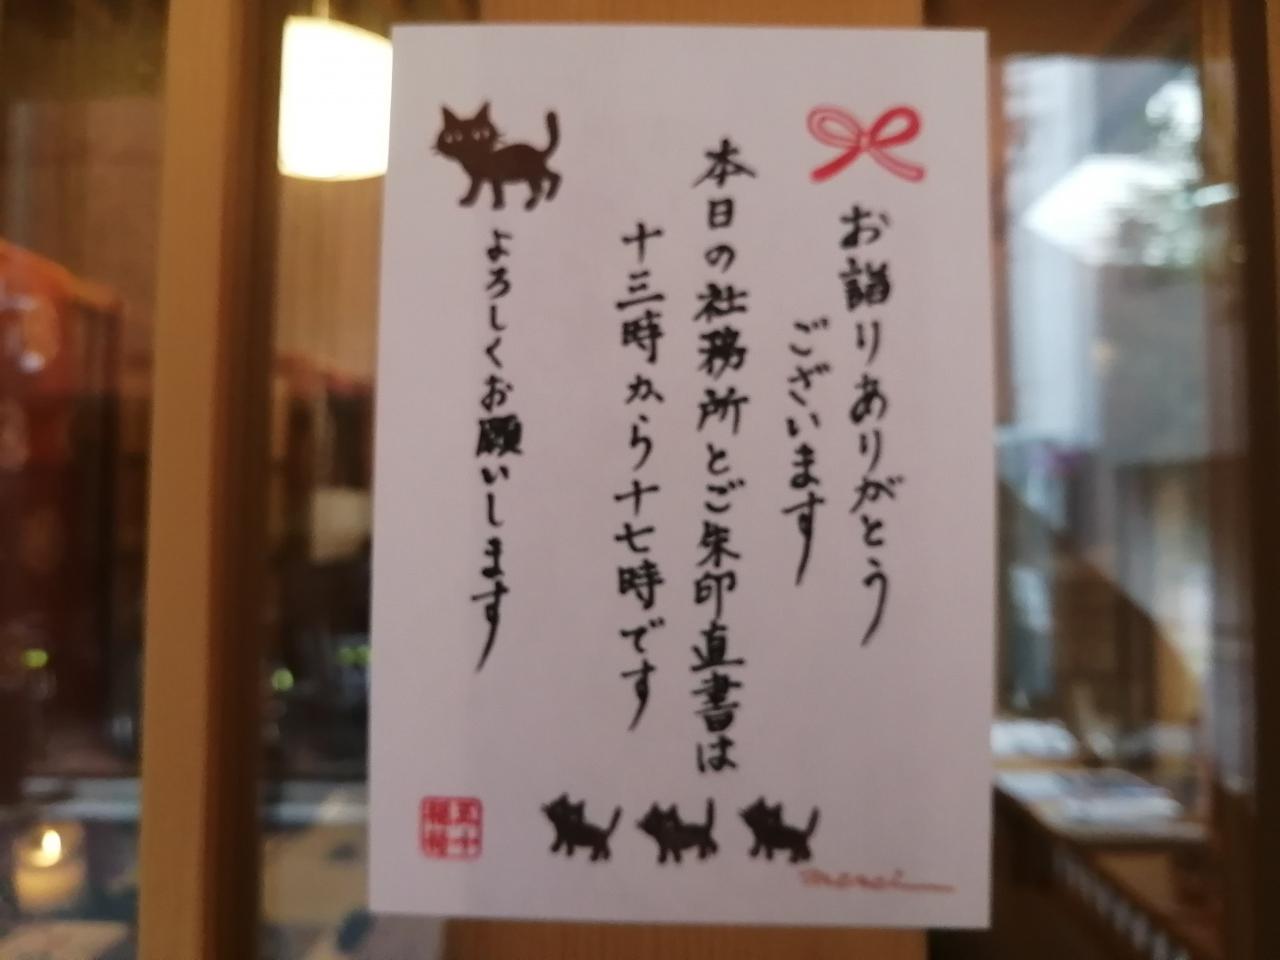 お詣りありがとう
ございます
本日の社務所とご朱印直書は
十三時から十七時です
よろしくお願いします